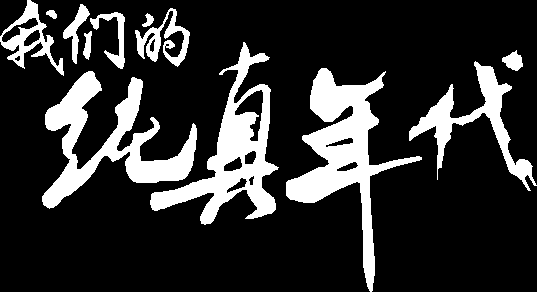 我们的
纯真年代